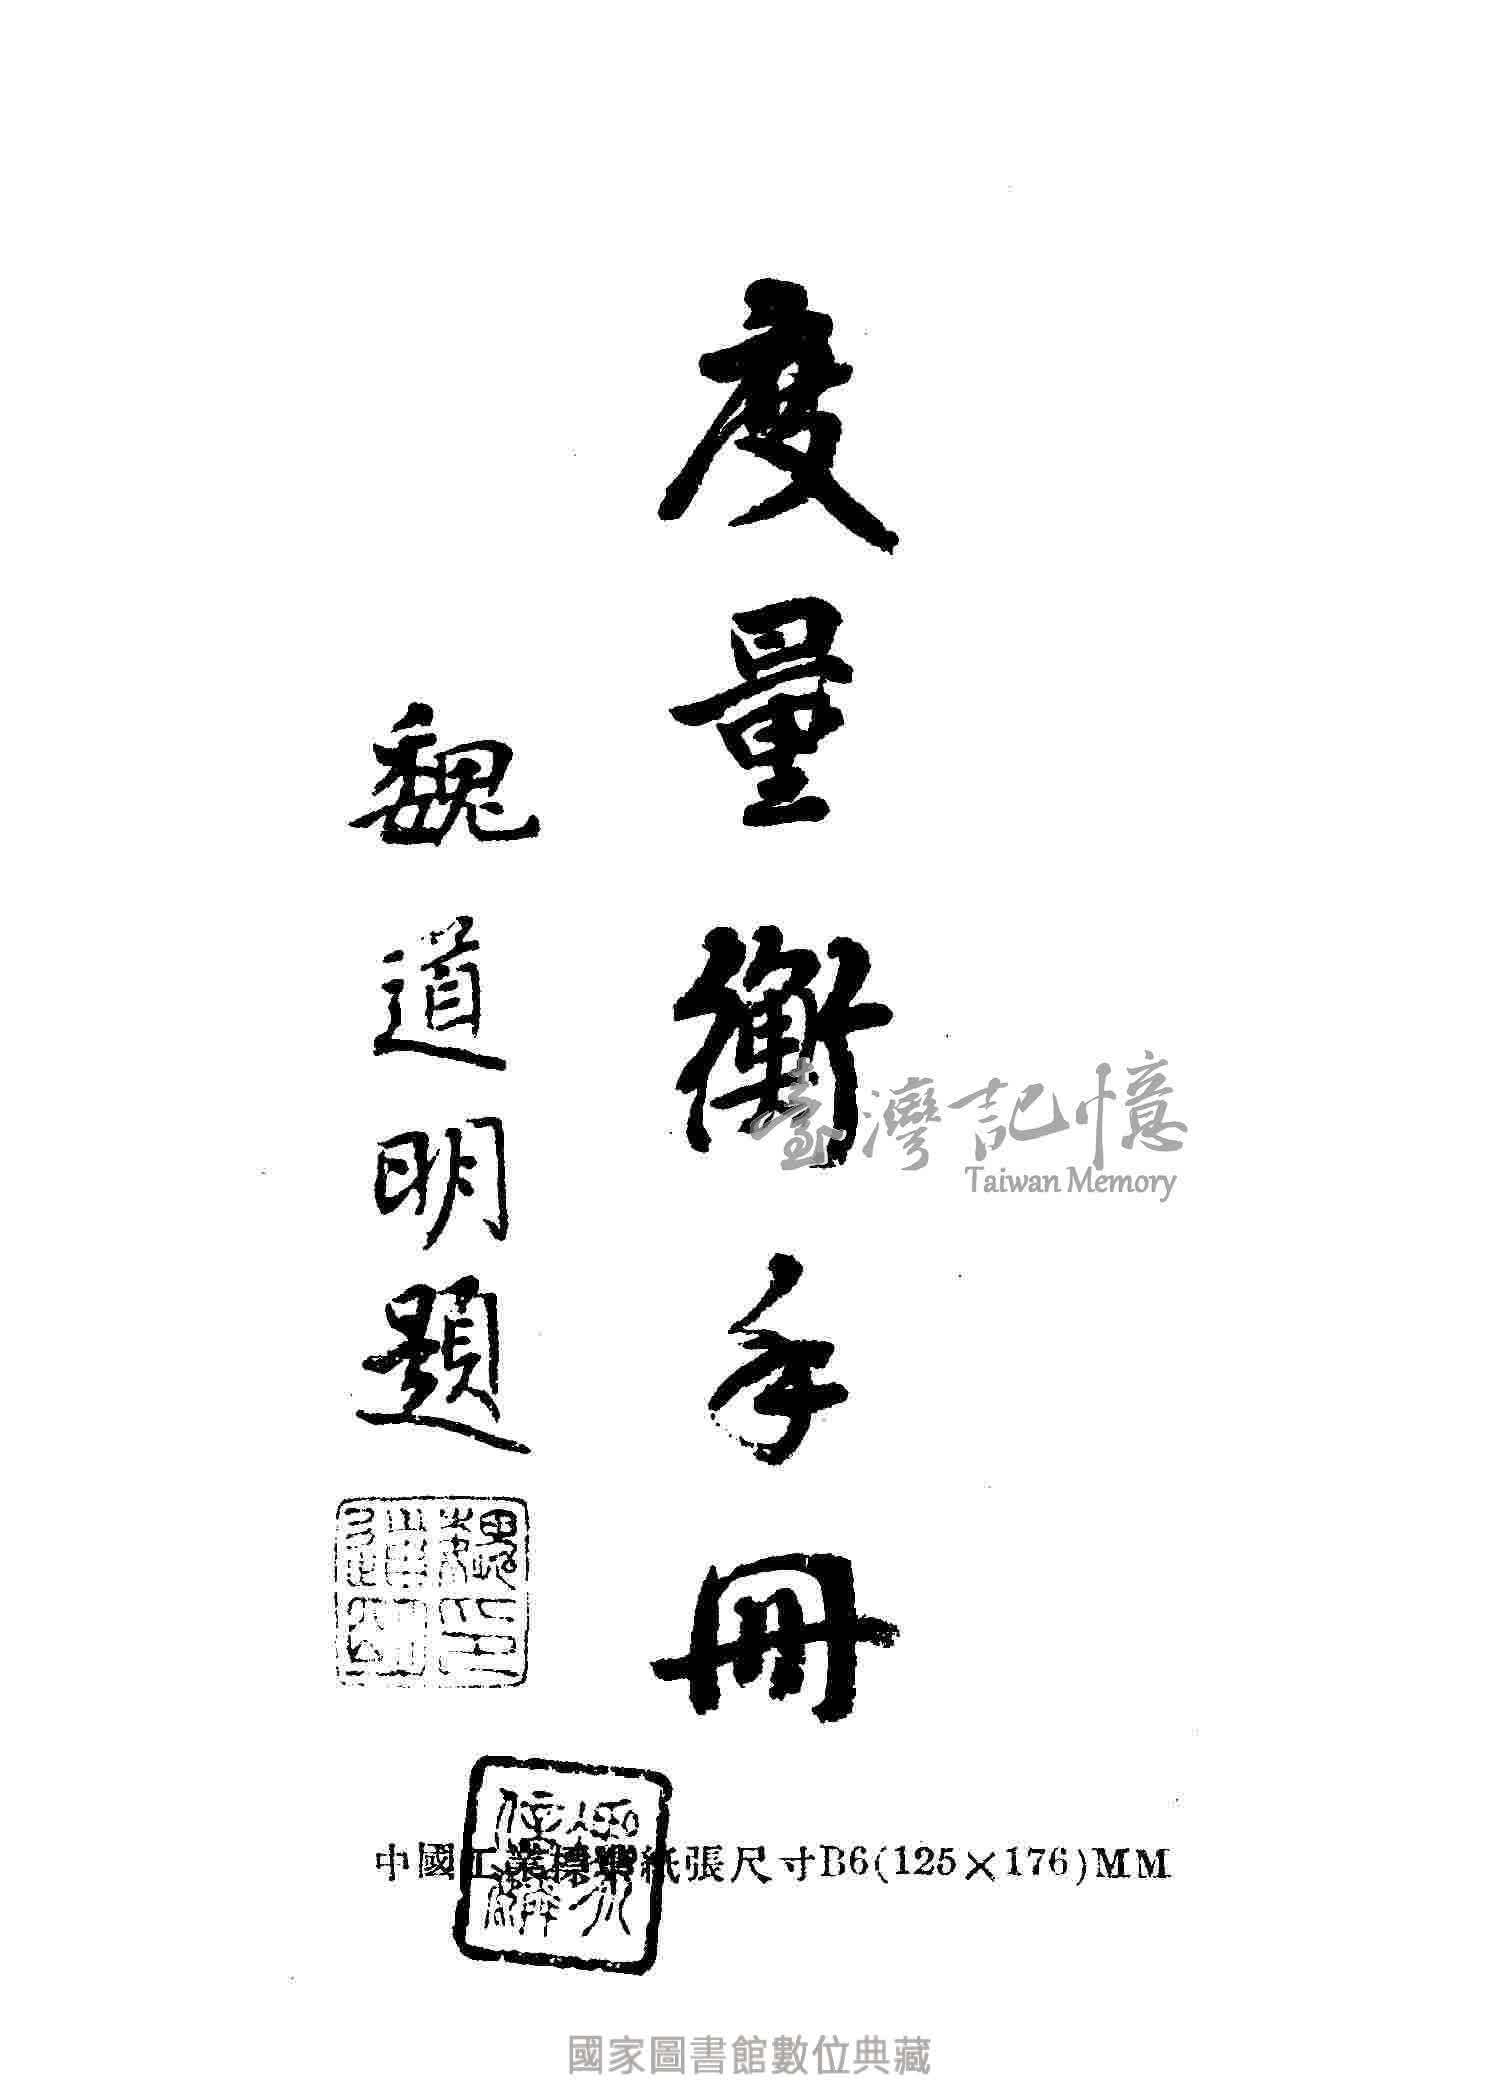 度量衡手冊
魏道明題
魏道明印
臺灣記憶
Taiwan Memory
中國工業標準紙張尺寸B6(125×176)MM
國家圖書館數位典藏